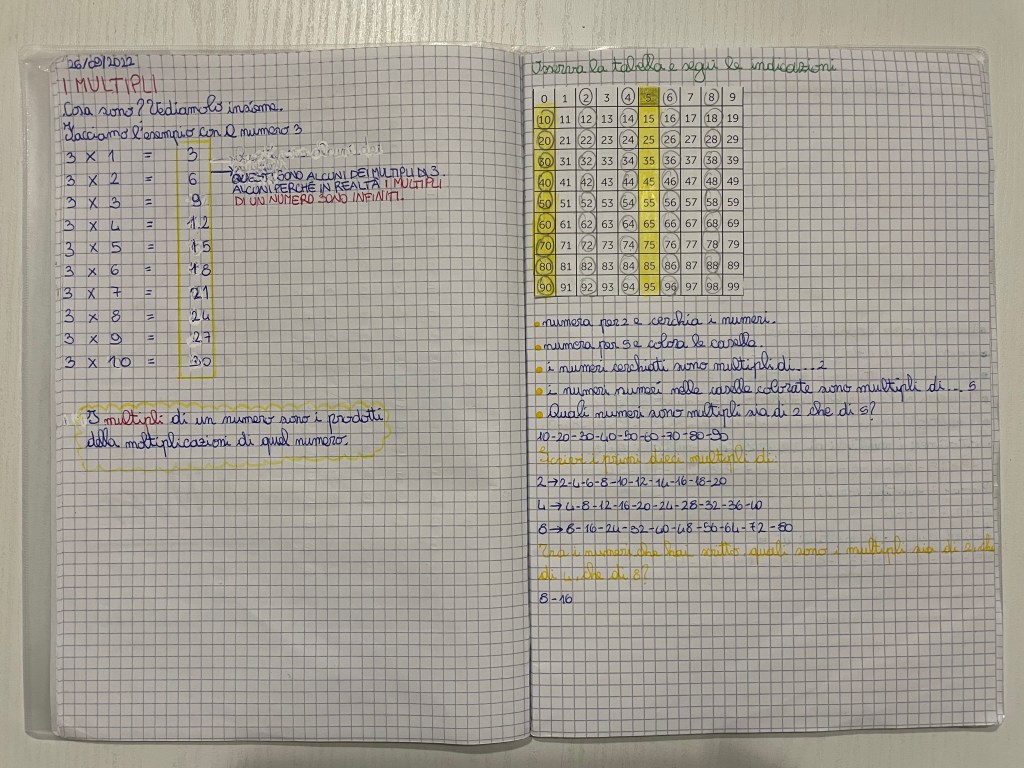 26/09/2022
I MULTIPLI
Cosa sono? Vediamolo insieme.
Facciamo l'esempio con il numero 3
3 x 1 = 3
3 x 2 = 6
QUESTI SONO ALCUNI DEI MULTIPLI DI 3.
ALCUNI PERCHÉ IN REALTÀ I MULTIPLI
DI UN NUMERO SONO INFINITI.
3 x 3 = 9
3 x 4 = 12
3 x 5 = 15
3 x 6 = 18
3 x 7 = 21
3 x 8 = 24
3 x 9 = 27
3 x 10 = 30
I multipli di un numero sono i prodotti
della moltiplicazioni di quel numero.
Osserva la tabella e segui le indicazioni
0 1 2 3 4 5 6 7 8 9
10 11 12 13 14 15 16 17 18 19
20 21 22 23 24 25 26 27 28 29
30 31 32 33 34 35 36 37 38 39
40 41 42 43 44 45 46 47 48 49
50 51 52 53 54 55 56 57 58 59
60 61 62 63 64 65 66 67 68 69
70 71 72 73 74 75 76 77 78 79
80 81 82 83 84 85 86 87 88 89
90 91 92 93 94 95 96 97 98 99
numera per 2 e cerchia i numeri.
numera per 5 e colora la casella.
i numeri cerchiati sono multipli di... 2
i numeri numeri nelle caselle colorate sono multipli di... 5
Quali numeri sono multipli sia di 2 che di 5?
10-20-30-40-50-60-70-80-90
Scrivi i primi dieci multipli di:
2→2-4-6-8-10-12-14-16-18-20
4→4-8-12-16-20-24-28-32-36-40
8→8-16-24-32-40-48-56-64-72-80
Tra i numeri che hai scritto quali sono i multipli sia di 2, che
di 4, che di 8?
8-16